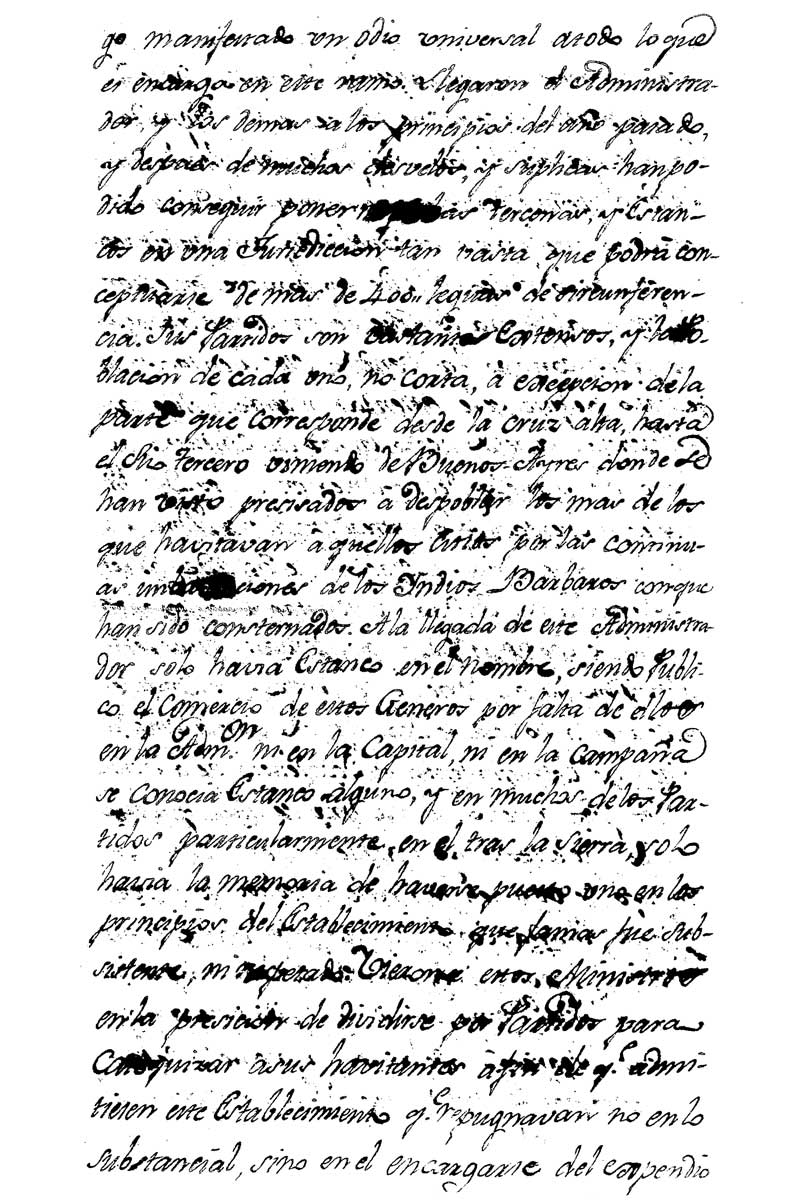 go manifestado un odio universal atodo lo que
es encargo en este ramo. Llegaron el Administra-
dor, y los demas a los principios del año pasado,
y despues de muchos desvelos, y suplicas han po-
dido conseguir poner las tercenas, y Estan-
cos en una Jurisdiccion tan vasta que podrà con-
ceptuarse de mas de 400,, leguas de circunferen-
cia. Sus Partidos son bastante Extensos, y la Po-
blacion de cada uno, no corta, à excepcion de la
parte que corresponde desde la Cruz alta, hasta
el Rio tercero viniendo de Buenos Ayres donde se
han visto presisados à despoblar los mas de los
que havitavan aquellos sitios por las continu-
as de los Indios Barbaros conque
han sido consternados. A la llegada de este Administra-
dor solo havia Estanco en el nombre, siendo Publi-
co el Comercio de estos Generos por falta de ellos
en la Adm.on ni en la Capital, ni en la Campaña
se conocia Estanco alguno, y en muchos de los Par-
tidos particularmente en el tras la Sierra, solo
havia la memoria de haverse puesto uno en los
principios del Establecimiento que jamas fue sub-
sistente, ni respetado. Vieronse estos Ministros
en la presicion de dividirse por Partidos para
Catequizar asus havitantes afin de q.e admi-
tiesen este Establecimiento q.e repugnavan no en lo
substancial, sino en el encargarse del expendio